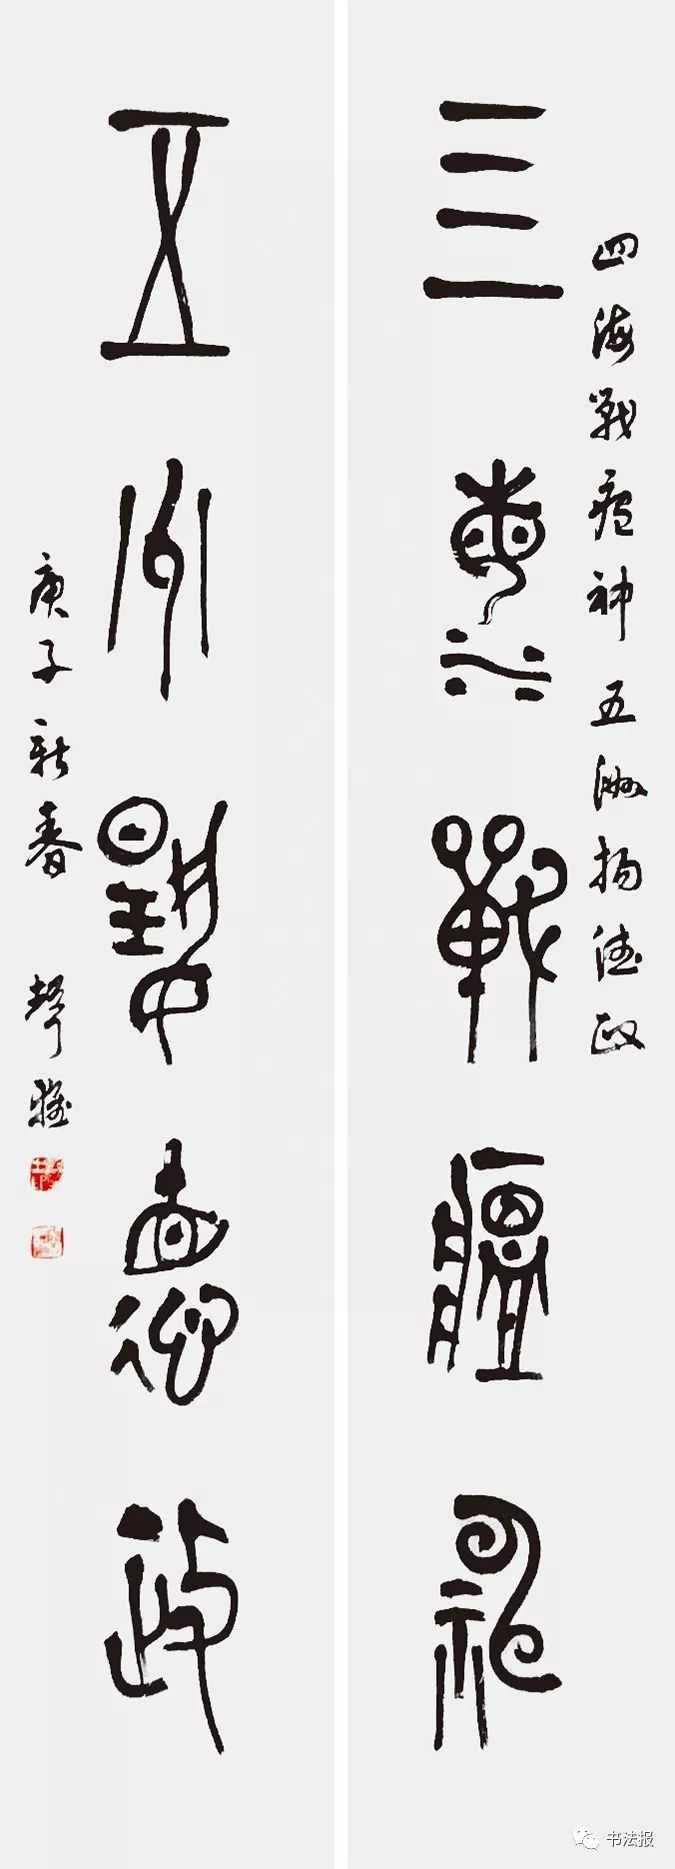 四海戰瘟神五洲揚德政
四海戰瘟神
五州揚德政
庚子新春
书法报